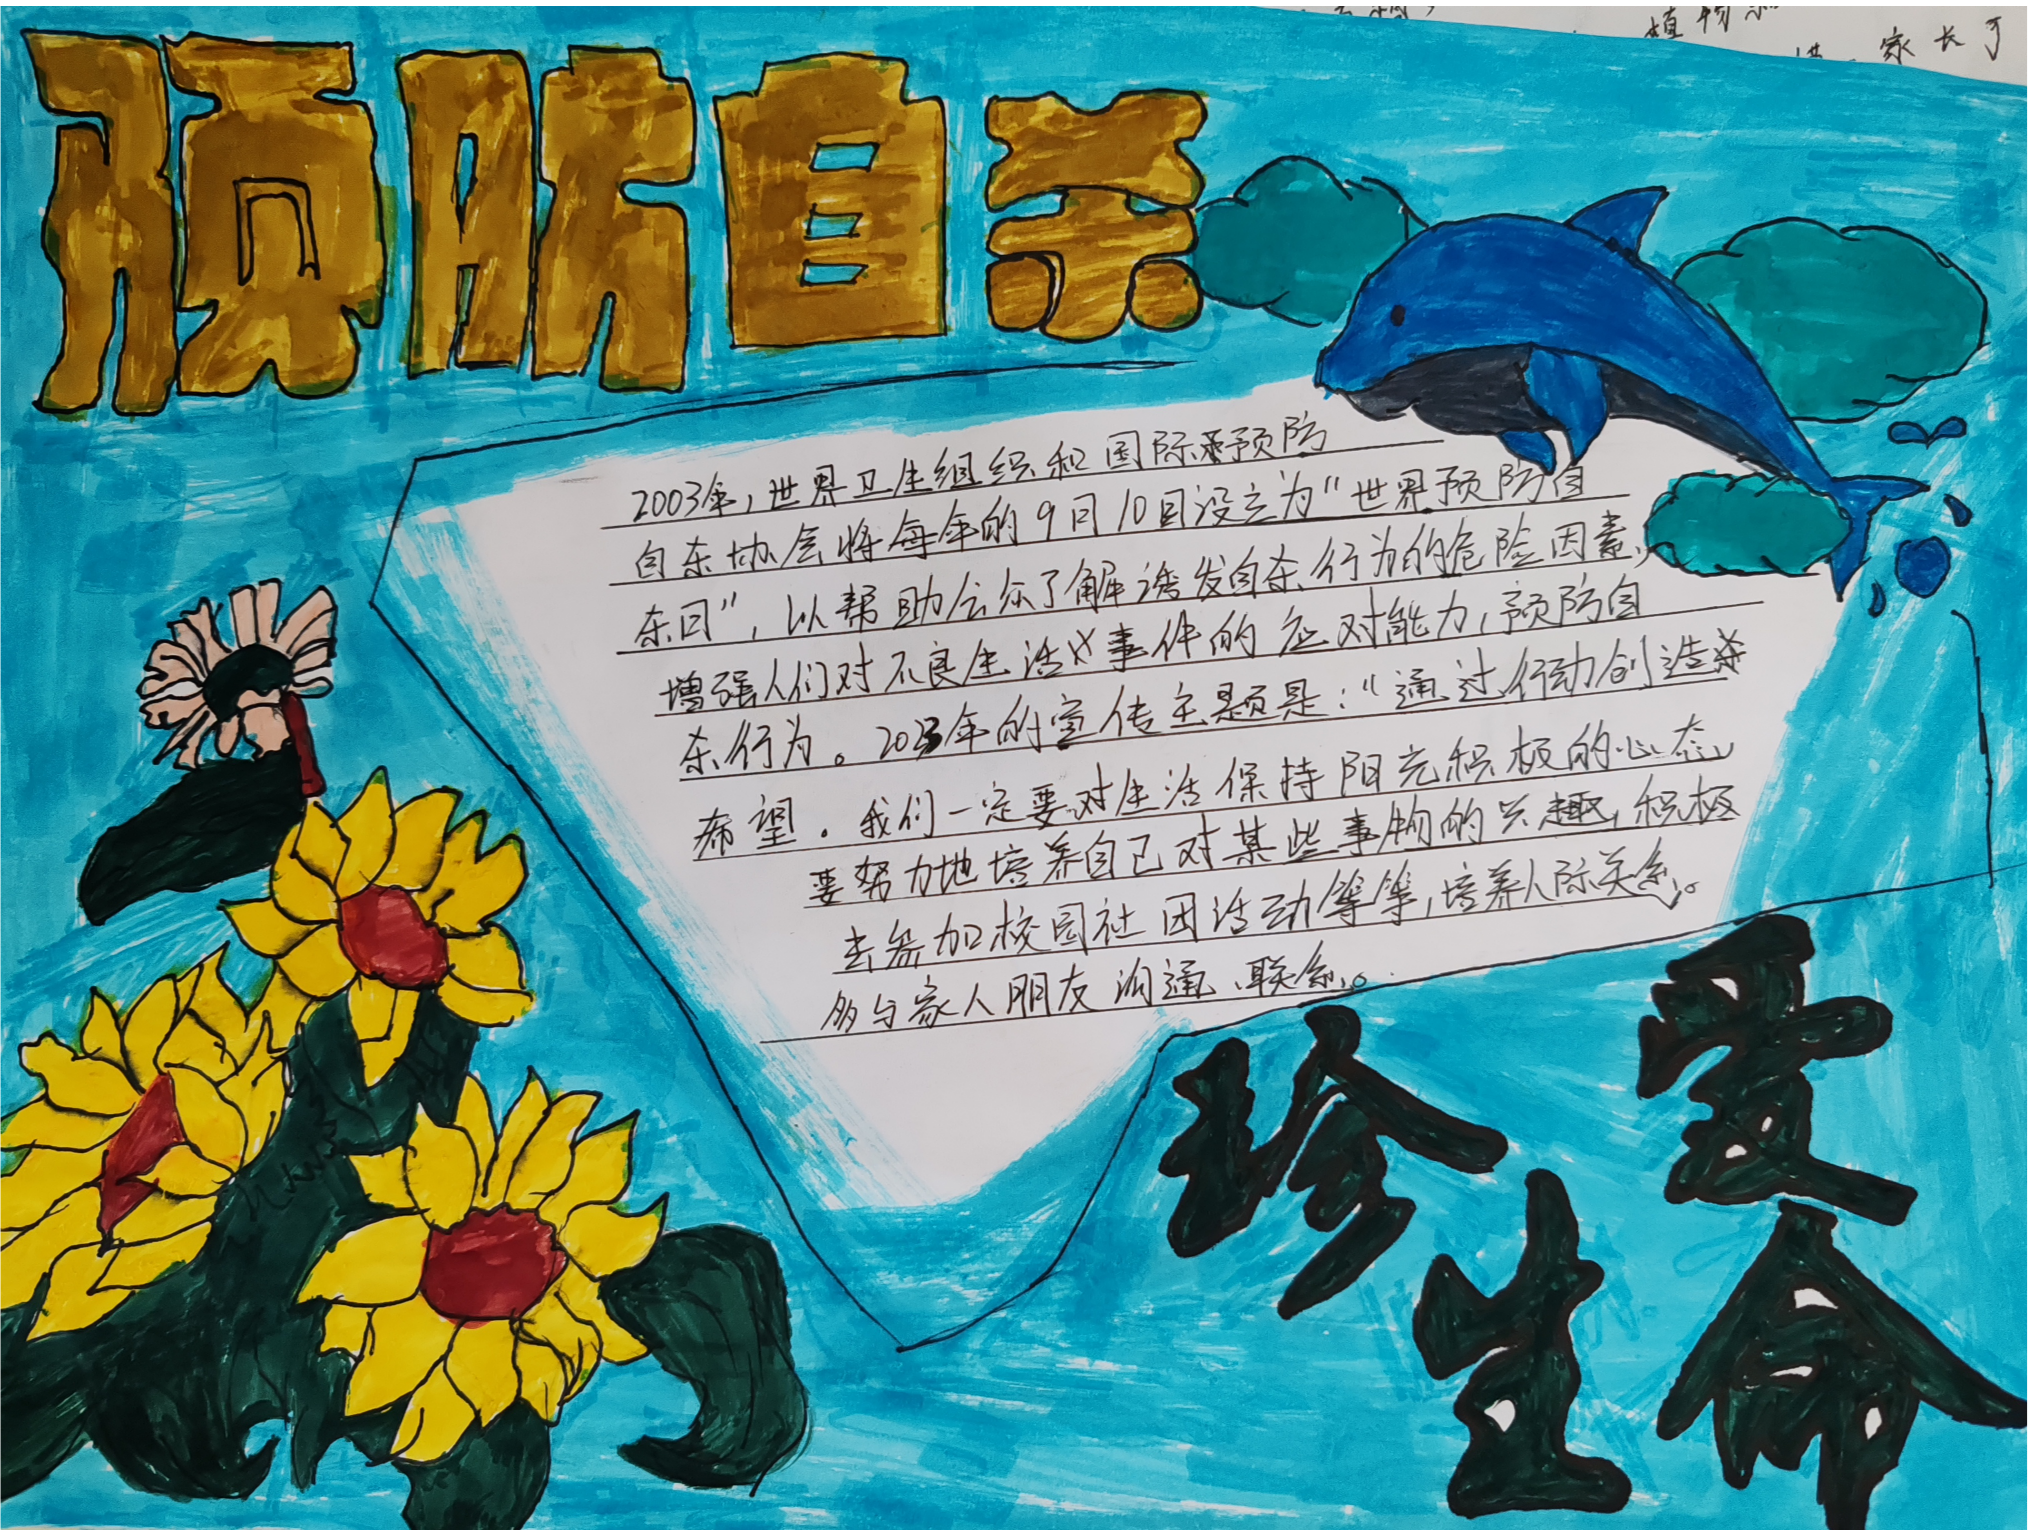 预防自杀
2003年，世界卫生组织和国际预防
自杀协会将每年的9月10日设立为“世界预防自
杀日”，以帮助公众了解诱发自杀行为的危险因素，
增强人们对不良生活事件的应对能力，预防自
杀行为。2023年的宣传主题是：“通过行动创造
希望。我们一定要对生活保持阳光积极的心态
要努力地培养自己对某些事物的兴趣，积极
去参加校园社团活动等等，培养人际关系。
多与家人朋友沟通、联系。
珍爱
生命
植物
家长